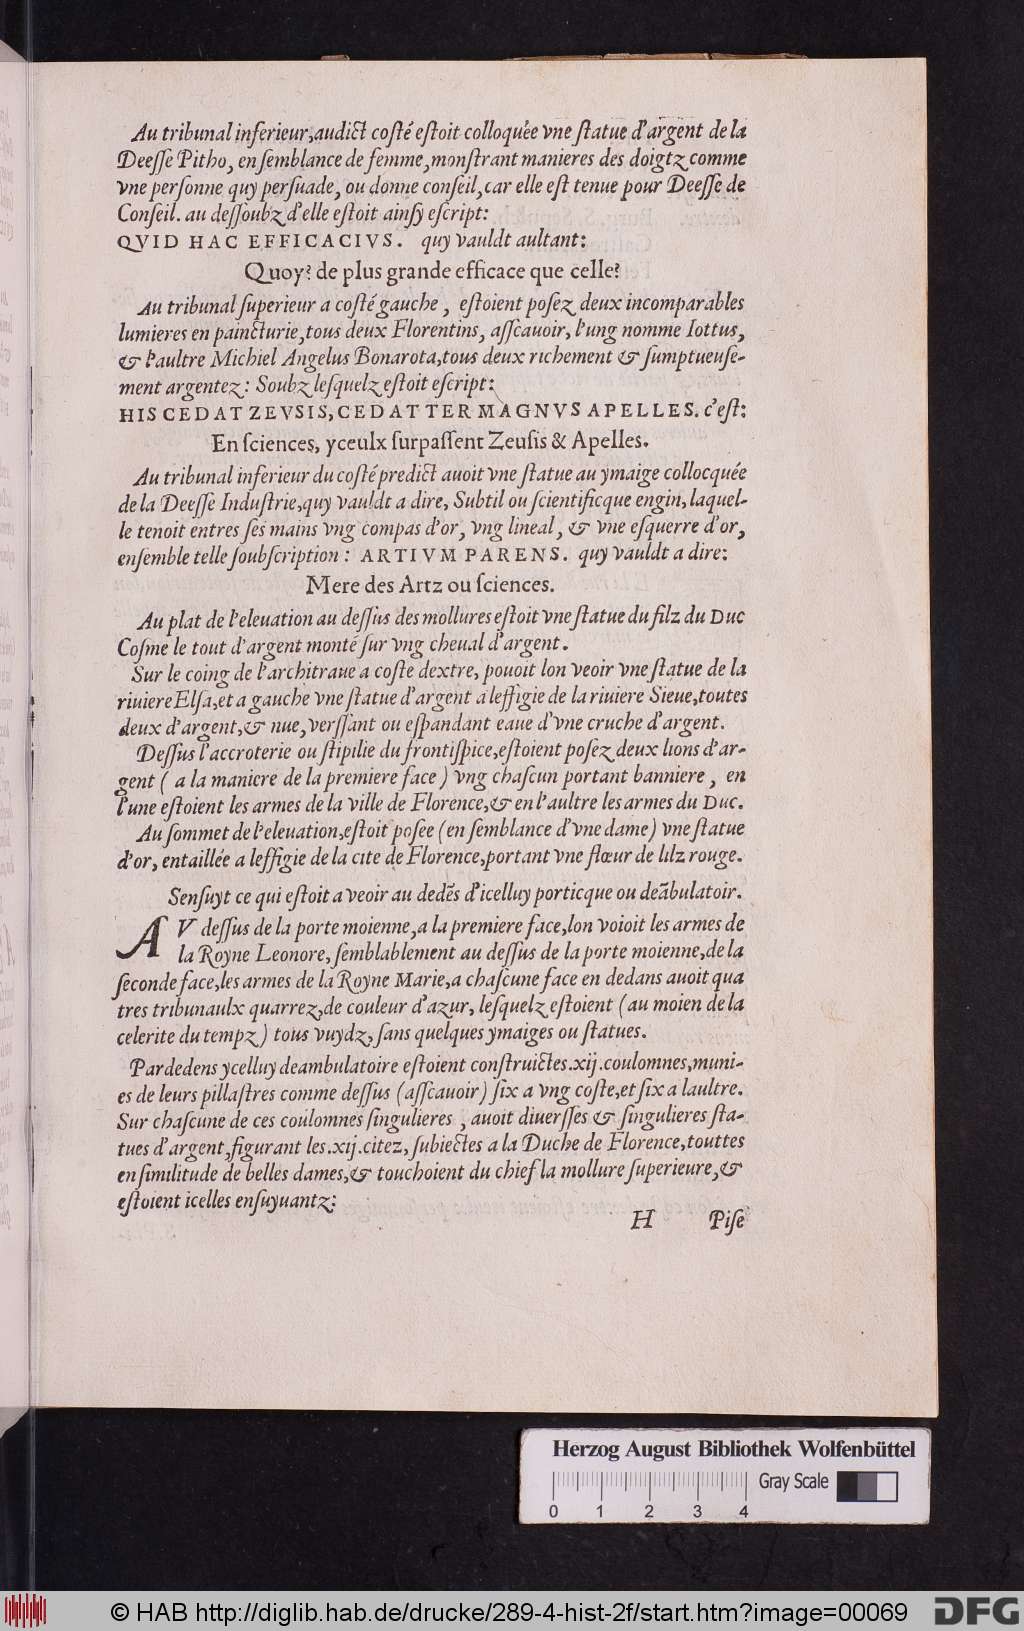 Au tribunal inferieur,audict coſté eſtoit colloquée vne ſtatue d'argent de la
Deeſſe Pitho, en ſemblance de femme,monſtrant manieres des doigtz comme
vne perſonne quy perſuade, ou donne conſeil,car elle eſt tenue pour Deeſſe de
Conſeil. au deſſoubz d'elle eſtoit ainſy eſcript:
QVID HAC EFFICACIVS. quy vauldt aultant:
Quoy? de plus grande efficace que celle?
Au tribunal ſuperieur a coſté gauche, eſtoient poſez deux incomparables
lumieres en paincturie,tous deux Florentins, aſſcauoir, l'ung nomme Iottus,
& l'aultre Michiel Angelus Bonarota,tous deux richement & ſumptueuſe-
ment argentez: Soubz leſquelz eſtoit eſcript:
HIS CEDAT ZEVSIS, CEDAT TER MAGNVS APELLES. c'eſt:
En ſciences, yceulx ſurpaſſent Zeuſis & Apelles.
Au tribunal inferieur du coſté predict auoit vne ſtatue au ymaige collocquée
de la Deeſſe Induſtrie,quy vauldt a dire, Subtil ou ſcientificque engin, laquel-
le tenoit entres ſes mains vng compas d'or, vng lineal, & vne eſquerre d'or,
enſemble telle ſoubſcription: ARTIVM PARENS. quy vauldt a dire:
Mere des Artz ou ſciences.
Au plat de l'eleuation au deſſus des mollures eſtoit vne ſtatue du filz du Duc
Coſme le tout d'argent monté ſur vng cheual d'argent.
Sur le coing de l'architraue a coſte dextre, pouoit lon veoir vne ſtatue de la
riuiere Elſa,et a gauche vne ſtatue d'argent a leffigie de la riuiere Sieue,toutes
deux d'argent,& nue, verſſant ou eſpandant eaue d'vne cruche d'argent.
Deſſus l'accroterie ou ſtipilie du frontiſpice,eſtoient poſez deux lions d'ar-
gent ( a la maniere de la premiere face ) vng chaſcun portant banniere, en
l'une eſtoient les armes de la ville de Florence,& en l'aultre les armes du Duc.
Au ſommet de l'eleuation,eſtoit poſee (en ſemblance d'vne dame) vne ſtatue
d'or, entaillée a leffigie de la cite de Florence,portant vne flœur de lilz rouge.
Senſuyt ce qui eſtoit a veoir au dedẽs d'icelluy porticque ou deãbulatoir.
AV deſſus de la porte moienne,a la premiere face,lon voioit les armes de
la Royne Leonore, ſemblablement au deſſus de la porte moienne,de la
ſeconde face,les armes de la Royne Marie,a chaſcune face en dedans auoit qua
tres tribunaulx quarrez,de couleur d'azur, leſquelz eſtoient (au moien de la
celerite du tempz) tous vuydz, ſans quelques ymaiges ou ſtatues.
Par dedens ycelluy deambulatoire eſtoient conſtruictes.xij.coulomnes,muni-
es de leurs pillaſtres comme deſſus (aſſcauoir) ſix a vng coſte,et ſix a laultre.
Sur chaſcune de ces coulomnes ſingulieres, auoit diuerſſes & ſingulieres ſta-
tues d'argent,figurant les.xij.citez, ſubiectes a la Duche de Florence,touttes
en ſimilitude de belles dames,& touchoient du chief la mollure ſuperieure,&
eſtoient icelles enſuyuantz:
H Piſe
Herzog August Bibliothek Wolfenbüttel
Gray Scale
0 1 2 3 4
© HAB http://diglib.hab.de/drucke/289-4-hist-2f/start.htm?image=00069
DFG